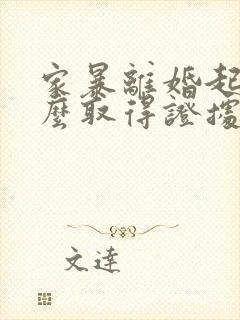 家暴離婚起
麼取得證據
文達